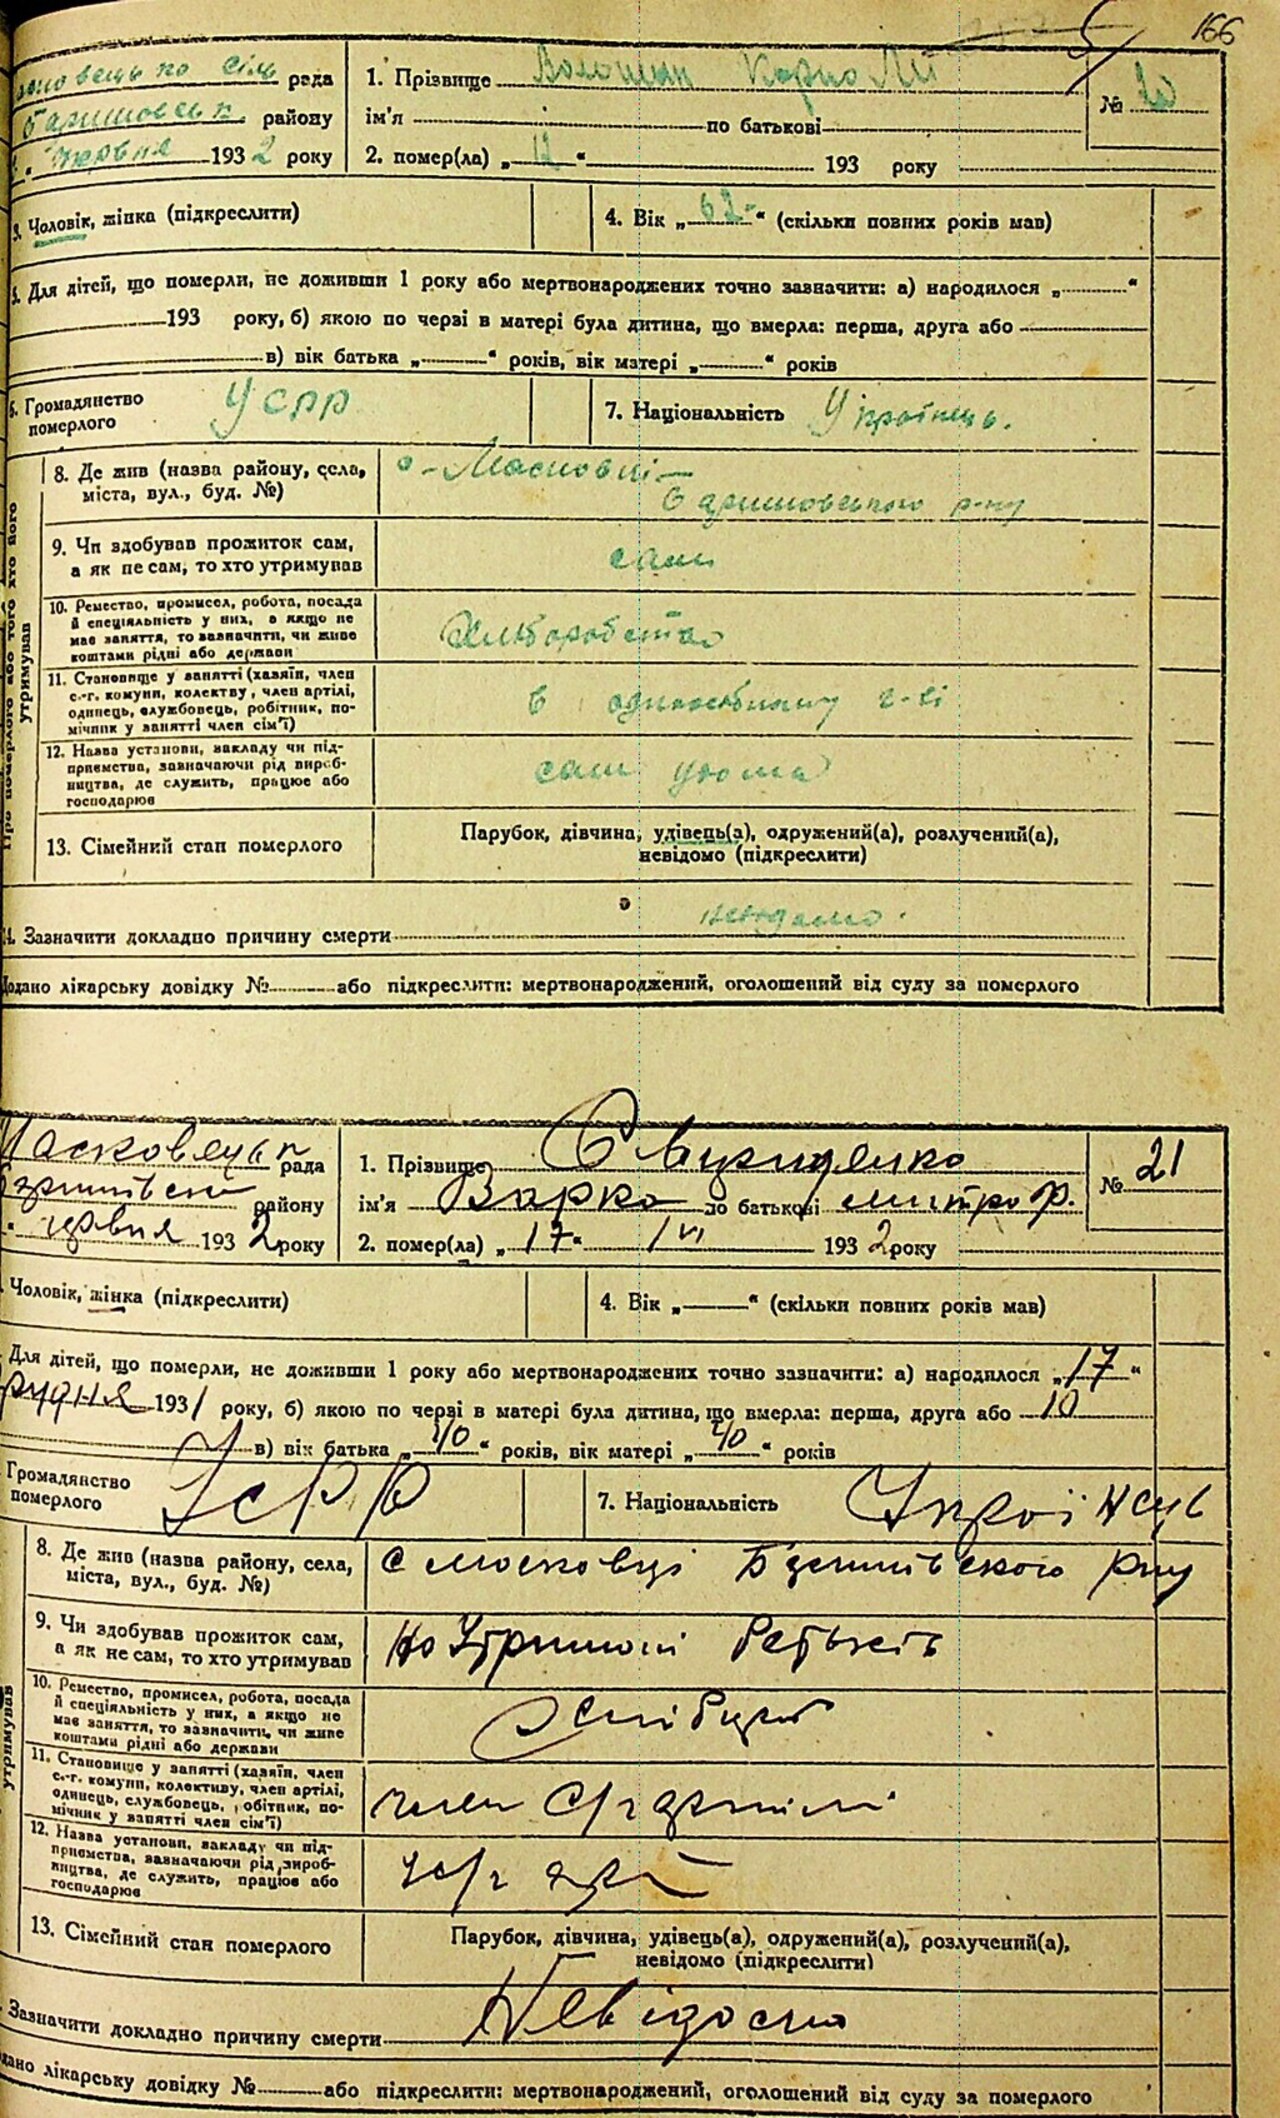 166
сіль рада
району
Червня 1932 року
1. Прізвище Волошин Карпо
№ 20
ім'я по батькові
2. помер(ла) „ “ 193 року
3. Чоловік, жінка (підкреслити)
4. Вік „62“ (скільки повних років мав)
5. Для дітей, що померли, не доживши 1 року або мертвонароджених точно зазначити: а) народилося „ “
193 року, б) якою по черзі в матері була дитина, що вмерла: перша, друга або
в) вік батька „ “ років, вік матері „ “ років
6. Громадянство померлого УСРР
7. Національність Українець.
8. Де жив (назва району, села, міста, вул., буд. №)
Масковці
Баришовського р-ну
9. Чи здобував прожиток сам, а як не сам, то хто утримував
сам
10. Ремество, промисел, робота, посада й спеціяльність у них, а якщо не має заняття, то зазначити, чи живе коштами рідні або держави
Хліборобство
11. Становище у занятті (хазяїн, член с.-г. комуни, колективу, член артілі, одинець, службовець, робітник, помічник у занятті член сім'ї)
в одноосібному г-ві
12. Назва установи, закладу чи підприємства, зазначаючи рід виробництва, де служить, працює або господарює
сам удома
13. Сімейний стан померлого
Парубок, дівчина, удівець(а), одружений(а), розлучений(а),
невідомо (підкреслити)
14. Зазначити докладно причину смерти невідомо.
Додано лікарську довідку № або підкреслити: мертвонароджений, оголошений від суду за померлого
рада
району
червня 1932 року
1. Прізвище
№ 21
ім'я Варка по батькові
2. помер(ла) „17“ VI 1932 року
Чоловік, жінка (підкреслити)
4. Вік „ “ (скільки повних років мав)
Для дітей, що померли, не доживши 1 року або мертвонароджених точно зазначити: а) народилося „17“
грудня 1931 року, б) якою по черзі в матері була дитина, що вмерла: перша, друга або 10
в) вік батька „40“ років, вік матері „40“ років
Громадянство померлого УСРР
7. Національність Україньць
8. Де жив (назва району, села, міста, вул., буд. №)
с Масковці рну
9. Чи здобував прожиток сам, а як не сам, то хто утримував
на Утримані батьків
10. Ремество, промисел, робота, посада й спеціяльність у них, а якщо не має заняття, то зазначити, чи живе коштами рідні або держави
11. Становище у занятті (хазяїн, член с.-г. комуни, колективу, член артілі, одинець, службовець, робітник, помічник у занятті член сім'ї)
член с/г артілі
12. Назва установи, закладу чи підприємства, зазначаючи рід виробництва, де служить, працює або господарює
13. Сімейний стан померлого
Парубок, дівчина, удівець(а), одружений(а), розлучений(а),
невідомо (підкреслити)
Зазначити докладно причину смерти Невідомо
Додано лікарську довідку № або підкреслити: мертвонароджений, оголошений від суду за померлого